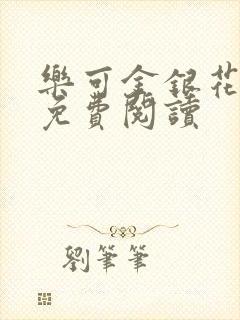 樂可金銀花
免費閱讀
劉筆筆